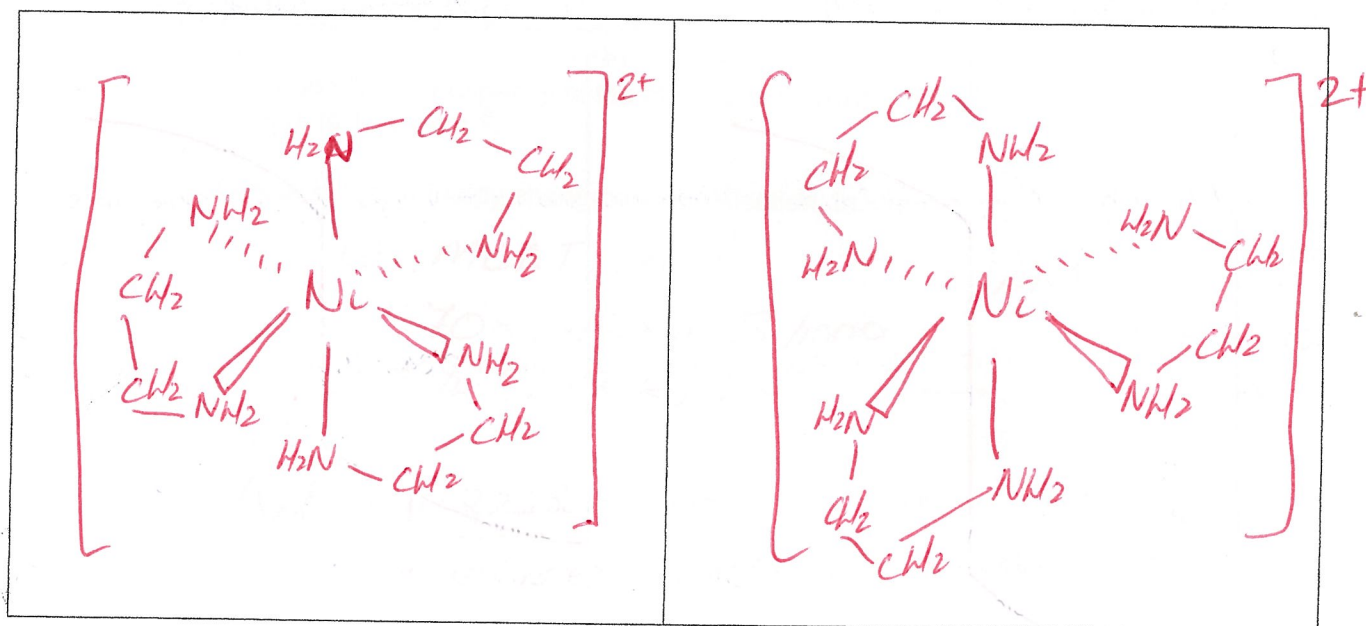 2+
H₂N CH₂ CH₂
NH₂ NH₂
CH₂ Ni
CH₂ NH₂ NH₂
H₂N CH₂ CH₂
2+
CH₂ NH₂
CH₂
H₂N H₂N CH₂
Ni CH₂
H₂N NH₂
CH₂ NH₂
CH₂